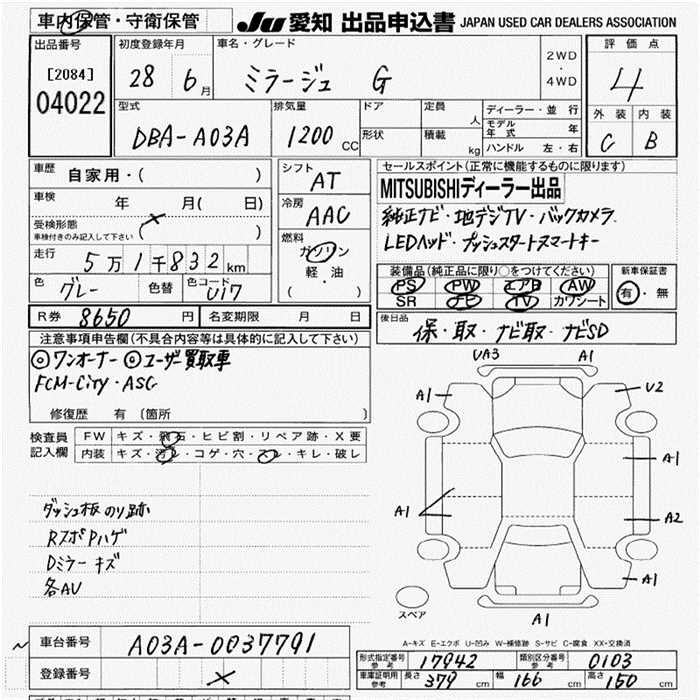 車内保管・守衛保管
JU 愛知 出品申込書 JAPAN USED CAR DEALERS ASSOCIATION
出品番号
[2084]
04022
初度登録年月
28年 6月
車名・グレード
ミラージュ G
2WD・4WD
評価点
4
外装 内装
C B
型式
DBA-A03A
排気量
1200 CC
ドア
形状
定員 人
積載 kg
ディーラー・並行
モデル年式 年
ハンドル 左・右
車歴 自家用・( )
車検 年 月( 日)
受検形態
車検付きのみ記入して下さい ( × )
走行 5万1千832km
色 グレー 色替 色コード U17
シフト AT
冷房 AAC
燃料 ガソリン
軽・油
( )
セールスポイント(正常に機能するものに限ります)
MITSUBISHIディーラー出品
純正ナビ・地デジTV・バックカメラ
LEDヘッド・プッシュスタートスマートキー
装備品(純正品に限り○をつけてください)
PS PW エアB AW
SR ナビ TV カワシート
新車保証書
有・無
R券 8650円 名変期限 月 日
後日品
保・取・ナビ取・ナビSD
注意事項申告欄(不具合内容等は具体的に記入して下さい)
◎ワンオーナー ◎ユーザー買取車
FCM-City・ASG
修復歴 有 〔箇所 〕
検査員記入欄
FW キズ・飛石・ヒビ割・リペア跡・X要
内装 キズ・汚レ・コゲ・穴・スレ・キレ・破レ
ダッシュ板のり跡
RスポPハゲ
Dミラーキズ
各AU
UA3 A1
A1 U2
A1
A1 A2
A1
A1
スペア
A-キズ E-エクボ U-凹み W-補修跡 S-サビ C-腐食 XX-交換済
車台番号 A03A-0037791
登録番号 ×
形式指定番号 参考 17942 類別区分番号 参考 0103
車庫証明用 参考 長さ 379cm 幅 166cm 高さ 150cm